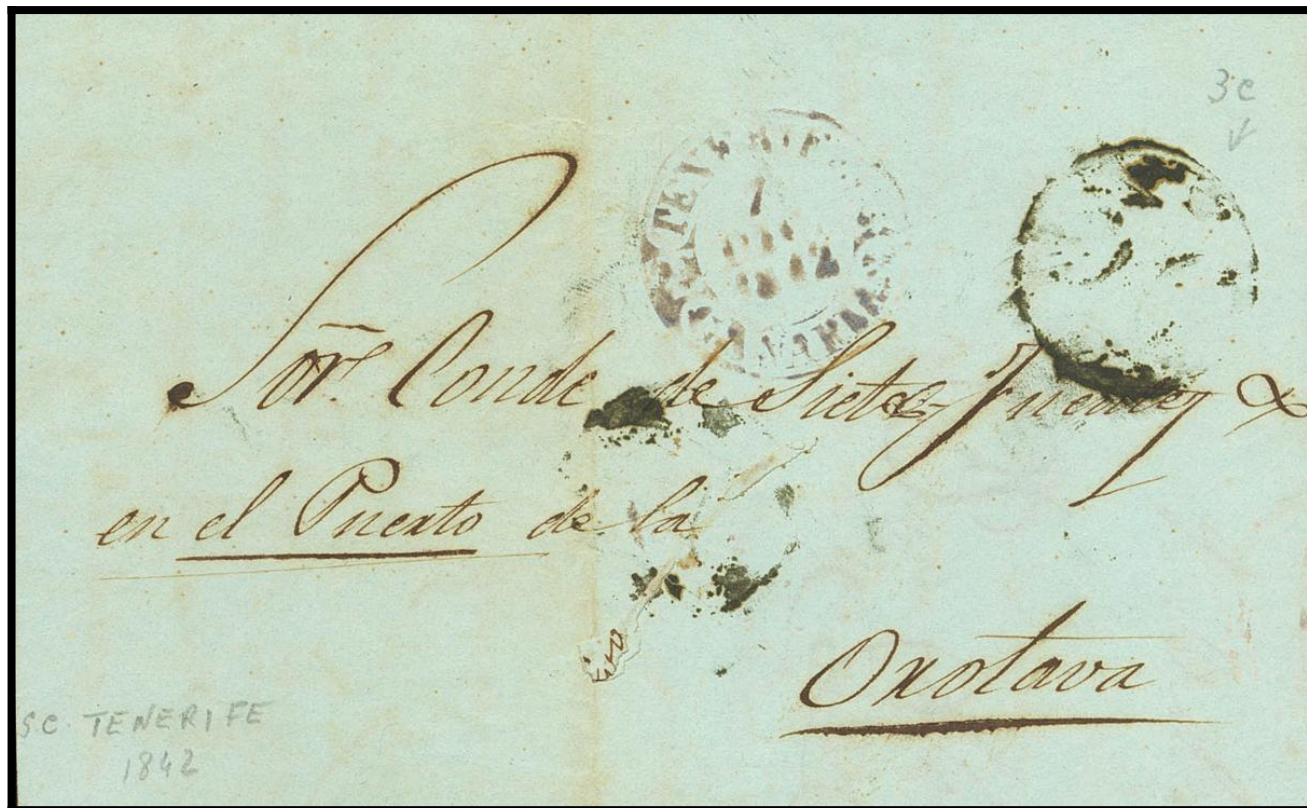 3c
TENERIFE
1
1842
Sor. Conde de Siete Fuentes
en el Puerto de la
Orotava
S.C. TENERIFE
1842